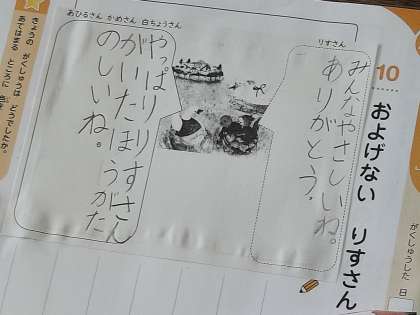 10
およげない りすさん
がくしゅうした 日
りすさん
みんなやさしいね。
ありがとう。
あひるさん かめさん 白ちょうさん
やっぱりりすさん
がいたほうがた
のしいね。
きょうの がくしゅうは どうでしたか。
あてはまる ところに